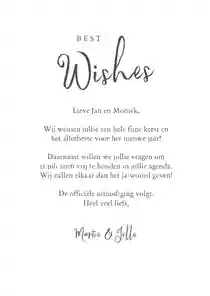 BEST
Wishes
Lieve Jan en Moniek,
Wij wensen jullie een hele fijne kerst en
het allerbeste voor het nieuwe jaar!
Daarnaast willen we jullie vragen om
12 juli 2025 vrij te houden in jullie agenda.
Wij zullen elkaar dan het ja-woord geven!
De officiële uitnodiging volgt.
Heel veel liefs,
Martie & Jelle